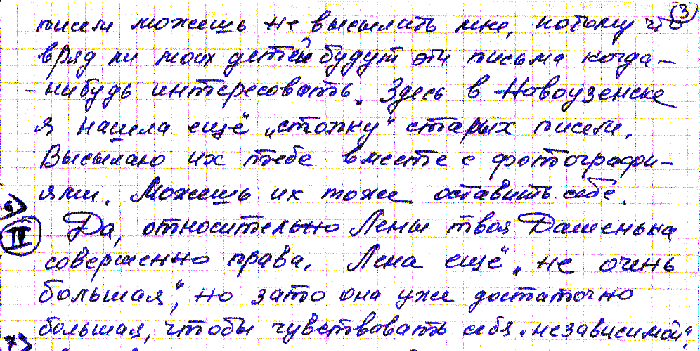 писем можешь не высылать мне, потому что (3)
вряд ли моих детей будут эти письма когда-
-нибудь интересовать. Здесь в Новоузенске
я нашла ещё „стопку" старых писем.
Высылаю их тебе вместе с фотографи-
ями. Можешь их тоже оставить себе.
II Да, относительно Лены твоя Дашенька
совершенно права. Лена ещё „не очень
большая", но зато она уже достаточно
большая, чтобы чувствовать себя независимой,